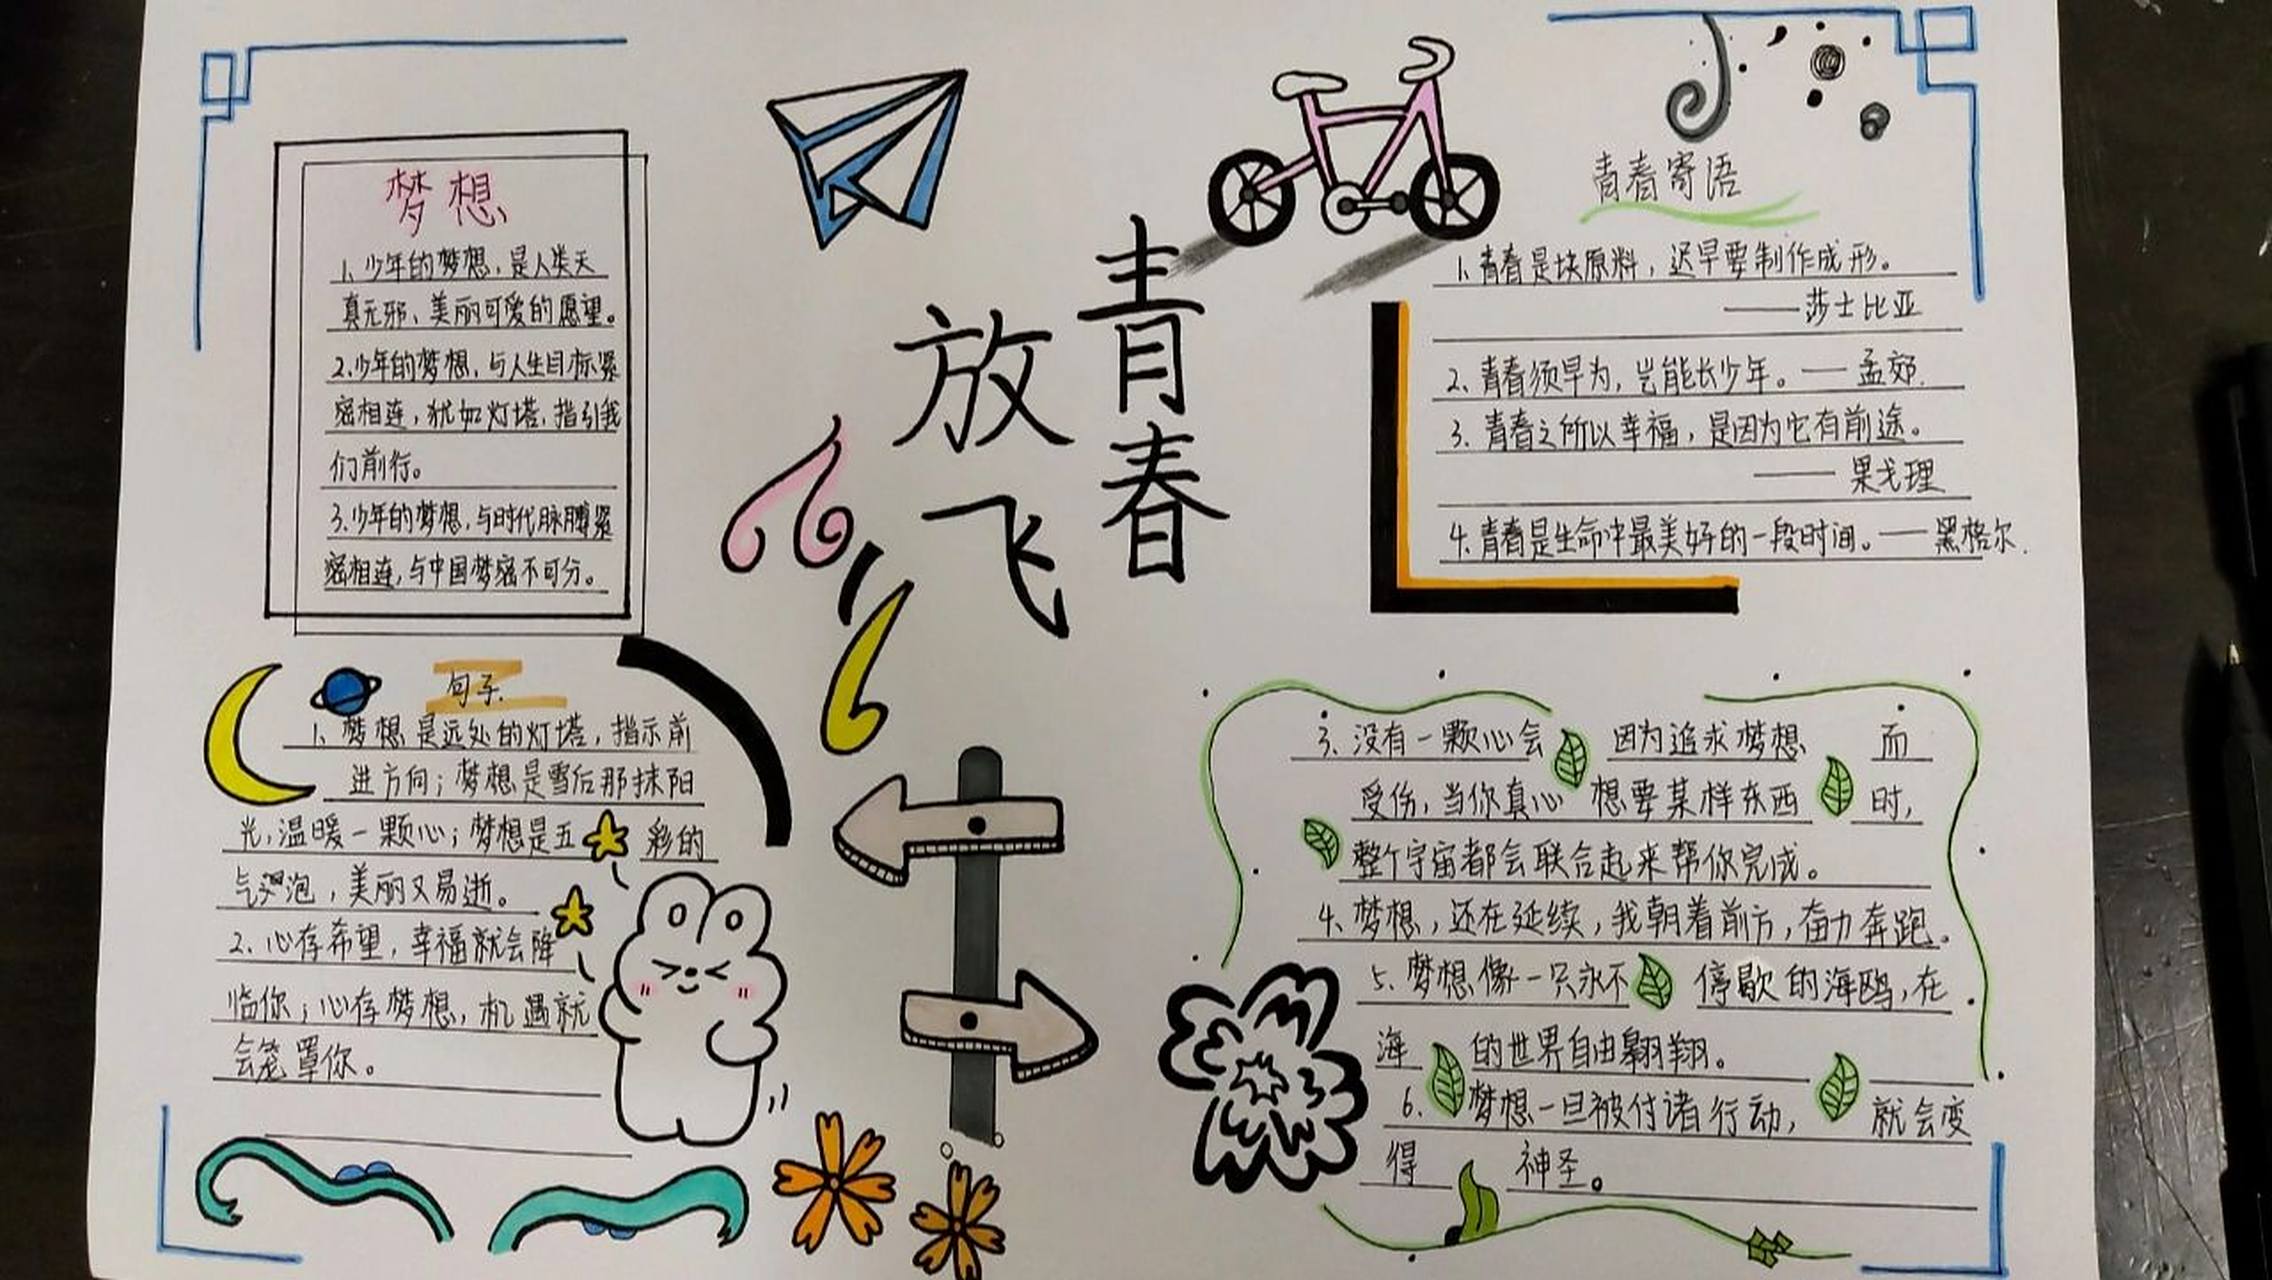 放飞
青春
梦想
1、少年的梦想，是人类天
真无邪、美丽可爱的愿望。
2、少年的梦想，与人生目标紧
密相连，犹如灯塔，指引我
们前行。
3、少年的梦想，与时代脉膊紧
密相连，与中国梦密不可分。
青春寄语
1、青春是块原料，迟早要制作成形。
——莎士比亚
2、青春须早为，岂能长少年。——孟郊.
3、青春之所以幸福，是因为它有前途。
——果戈理
4、青春是生命中最美好的一段时间。——黑格尔.
句子.
1、梦想是远处的灯塔，指示前
进方向；梦想是雪后那抹阳
光，温暖一颗心；梦想是五彩的
气泡，美丽又易逝。
2、心存希望，幸福就会降
临你；心存梦想，机遇就
会笼罩你。
3、没有一颗心会因为追求梦想而
受伤，当你真心想要某样东西时，
整个宇宙都会联合起来帮你完成。
4、梦想，还在延续，我朝着前方，奋力奔跑。
5、梦想像一只永不停歇的海鸥，在
海的世界自由翱翔。
6、梦想一旦被付诸行动，就会变
得神圣。